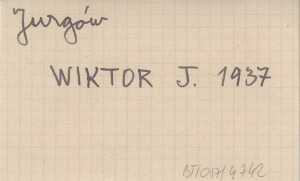 Jurgów
WIKTOR J. 1937
BT/087/4742